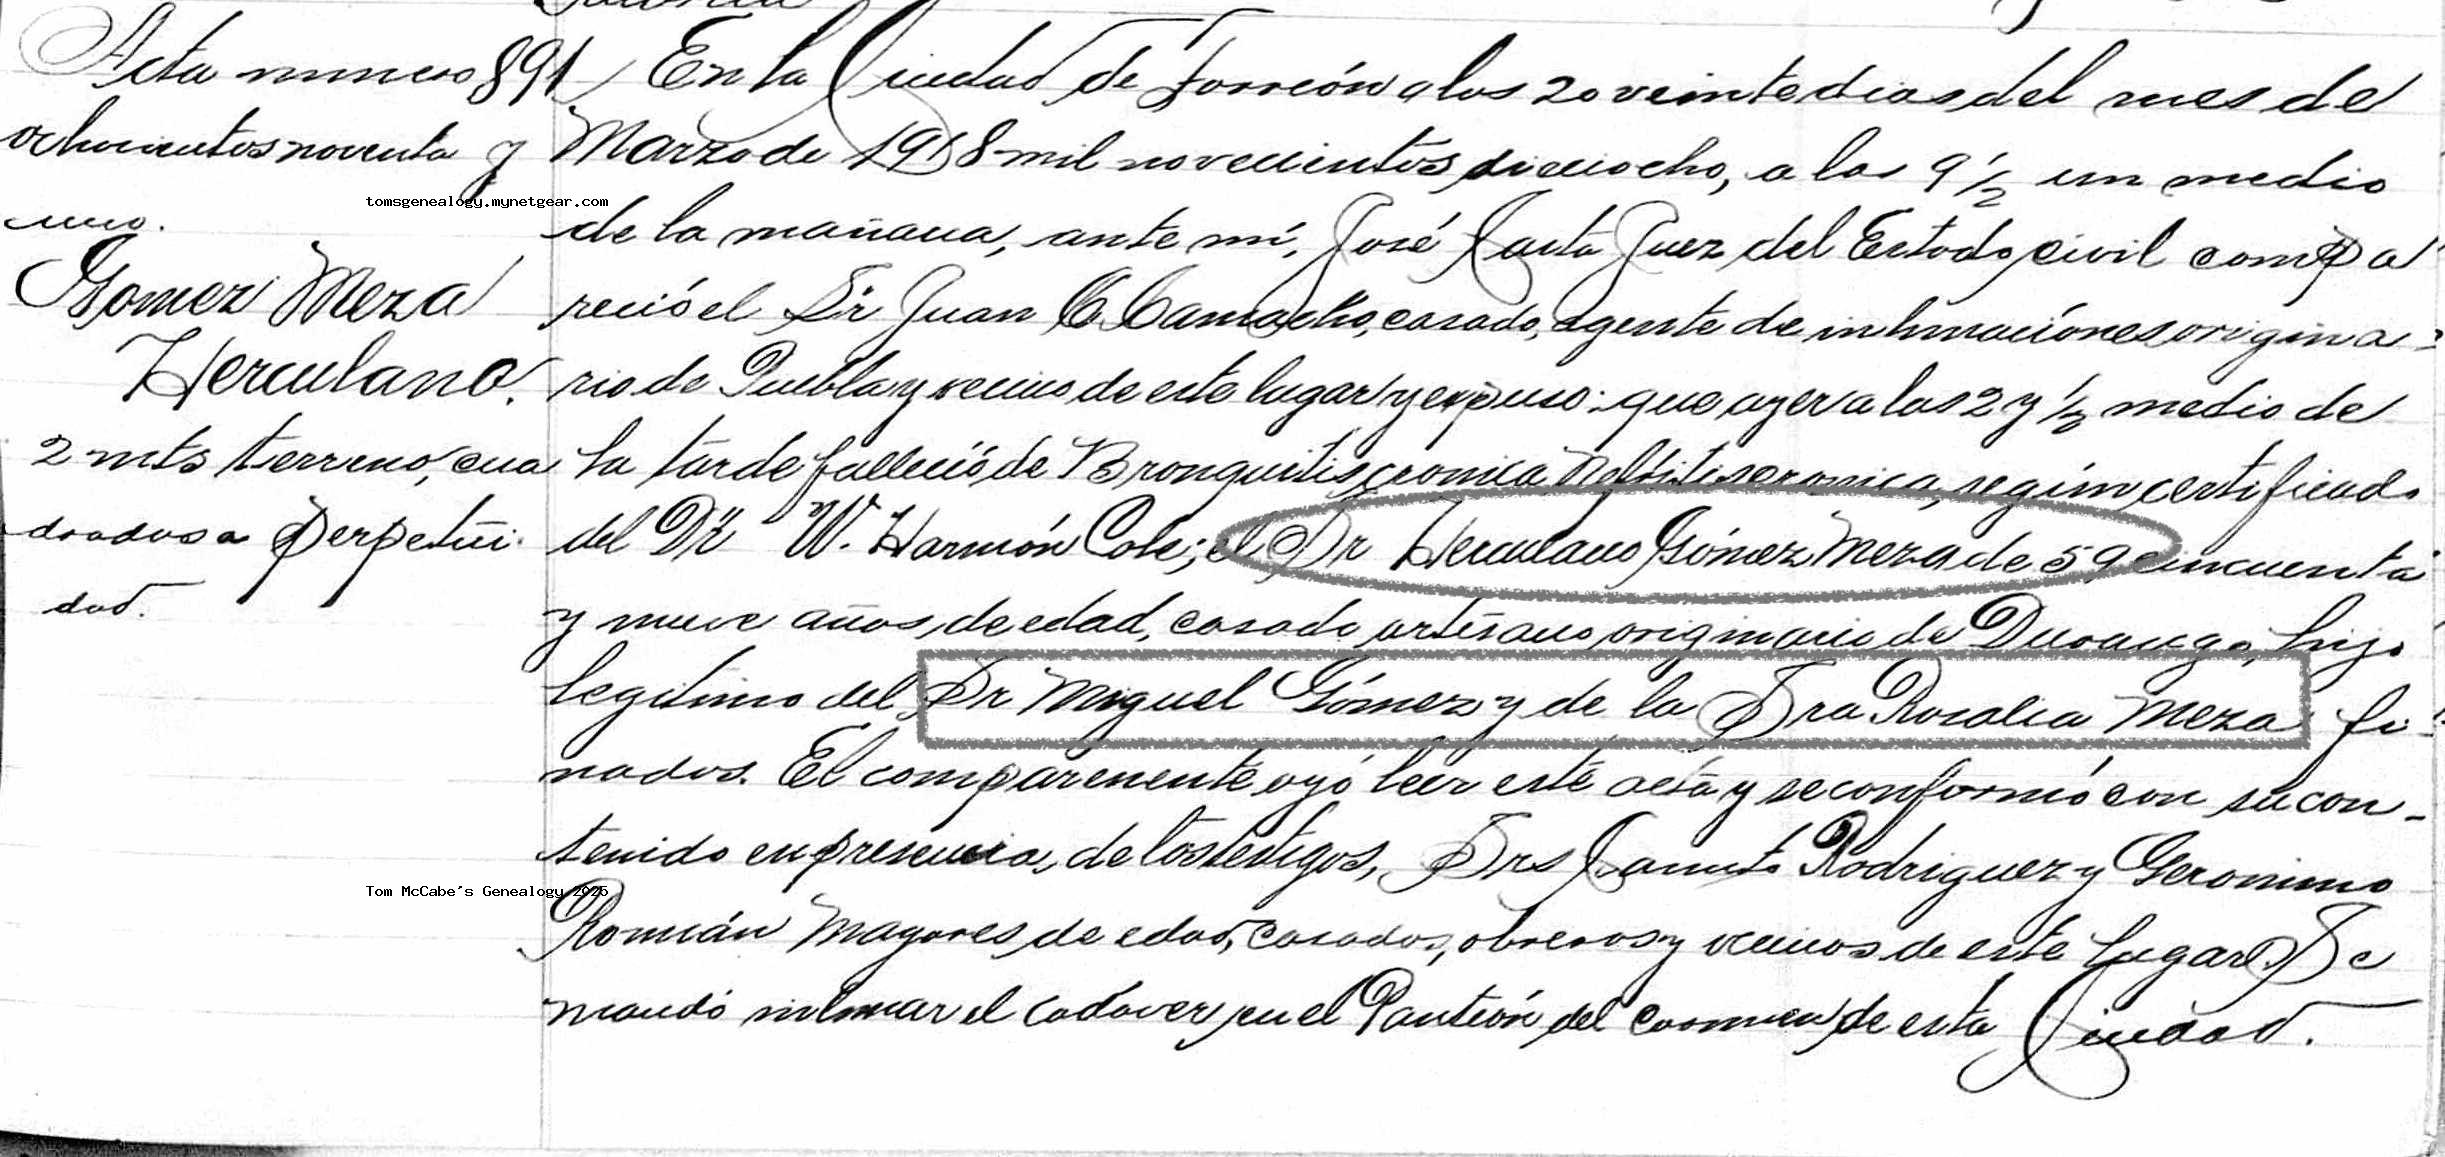 Acta numero 891
ochocientos noventa y
uno.
Gomez Meza
Herculano.
2 mts terreno, cua
drados a perpetui
dad.
En la Ciudad de Torreón a los 20 veinte dias del mes de
Marzo de 1918 mil novecientos dieciocho, a las 9 1/2 un medio
de la mañana, ante mi, José Juez del Estado civil compa
reció el Sr Juan C. Camacho, casado, agente de inhumaciones origina-
rio de Puebla y vecino de este lugar y expuso: que ayer a las 2 y 1/2 medio de
la tarde falleció de Bronquitis cronica cronica, según certificado
del Dr W. Harmón Cole; el Sr Herculano Gómez Meza de 59 cincuenta
y nueve años de edad, casado, artesano, originario de Durango, hijo
legitimo del Sr Miguel Gómez y de la Sra Rosalia Meza fi-
nados. El compareciente oyó leer esté acta y se conformó con su con-
tenido en presencia, de los testigos, Srs Rodriguez y Geronimo
Román Mayores de edad, casados, obreros y vecinos de este lugar. Se
mandó inhumar el cadáver, en el Panteón del Carmen de esta Ciudad.
tomsgenealogy.mynetgear.com
Tom McCabe's Genealogy 2025